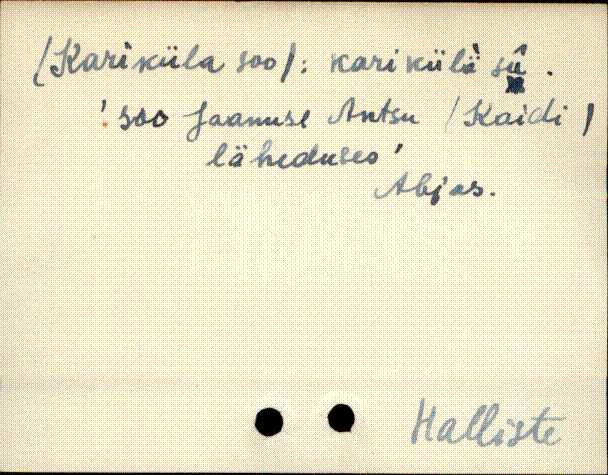 (Kariküla soo): karikülà sû.
'soo Jaanuse Antsu (Kaidi)
läheduses'
Abjas.
Halliste